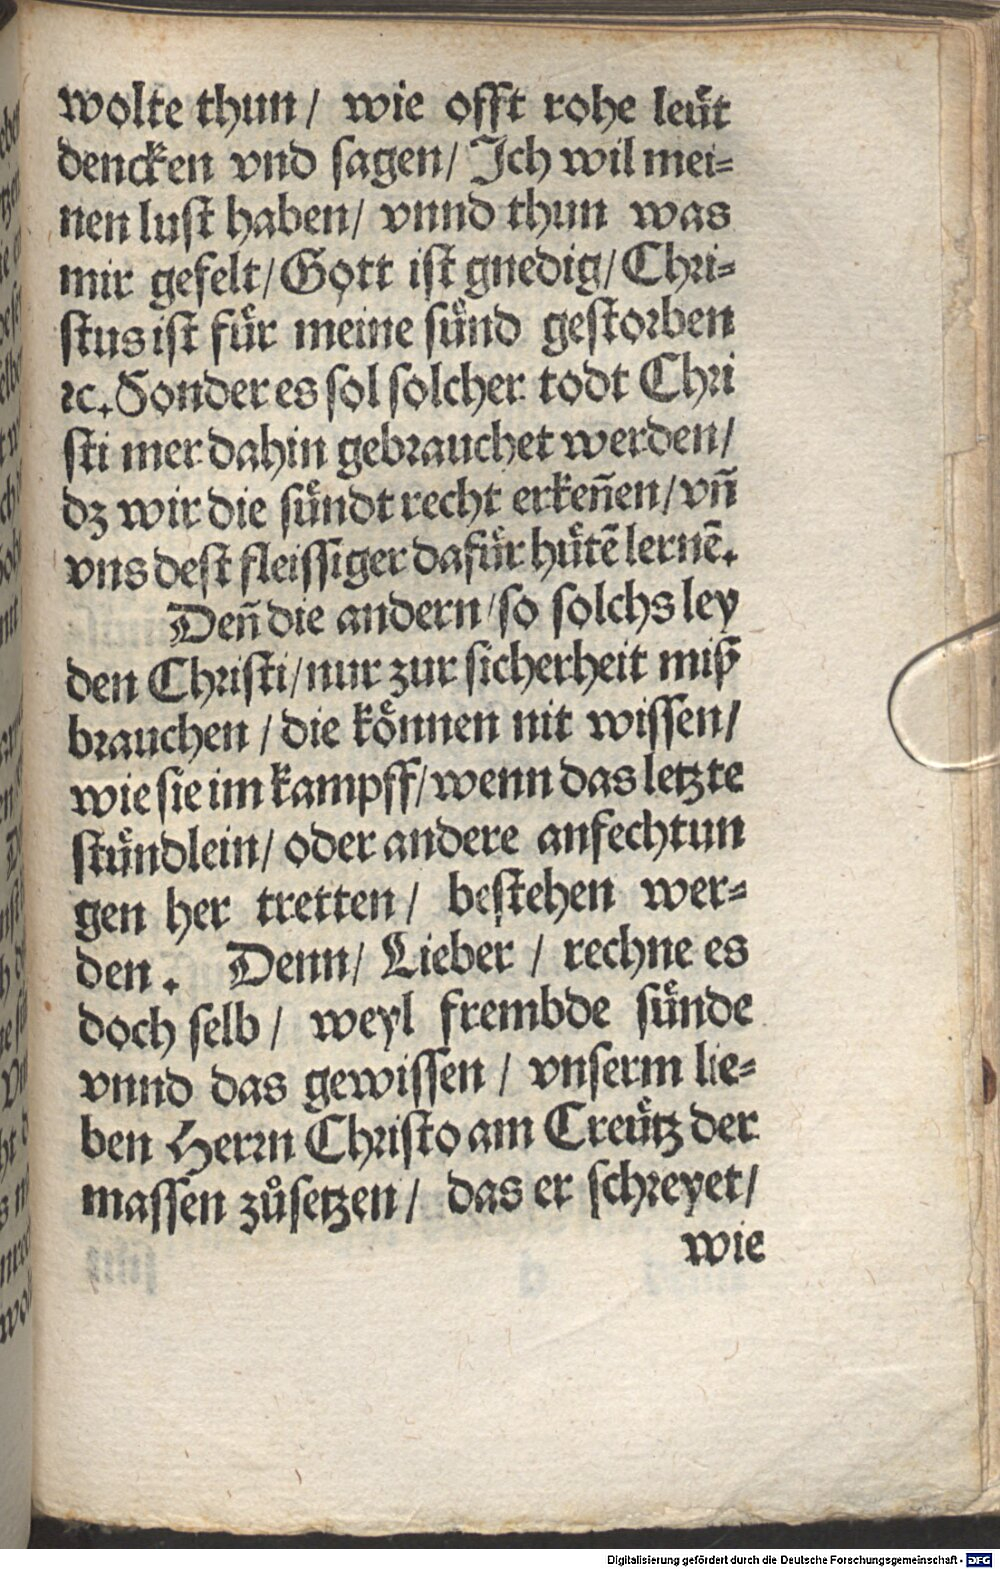 wolte thun/ wie offt rohe leüt
dencken vnd sagen/ Ich wil mei=
nen lust haben/ vnnd thun was
mir gefelt/ Gott ist gnedig/ Chri=
stus ist für meine sünd gestorben
ꝛc. Sonder es sol solcher todt Chri
sti mer dahin gebrauchet werden/
dz wir die sündt recht erkeñen/ vñ
vns dest fleissiger dafür hütẽ lernẽ.
Deñ die andern/ so solchs ley
den Christi/ nur zur sicherheit miß
brauchen/ die können nit wissen/
wie sie im kampff/ wenn das letzte
stündlein/ oder andere anfechtun
gen her tretten/ bestehen wer=
den. Denn/ Lieber/ rechne es
doch selb/ weyl frembde sünde
vnnd das gewissen/ vnserm lie=
ben Herrn Christo am Creütz der
massen zůsetzen/ das er schreyet/
wie
Digitalisierung gefördert durch die Deutsche Forschungsgemeinschaft - DFG